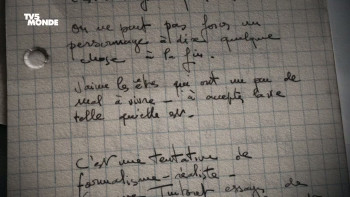 TV5
MONDE
on ne peut pas forcer un
personnage à dire quelque
chose à la fin.
J'aime les êtres qui ont un peu de
mal à vivre - à accepter la vie
telle qu'elle est.
C'est une tentative de
formalisme - réaliste -
essaye de